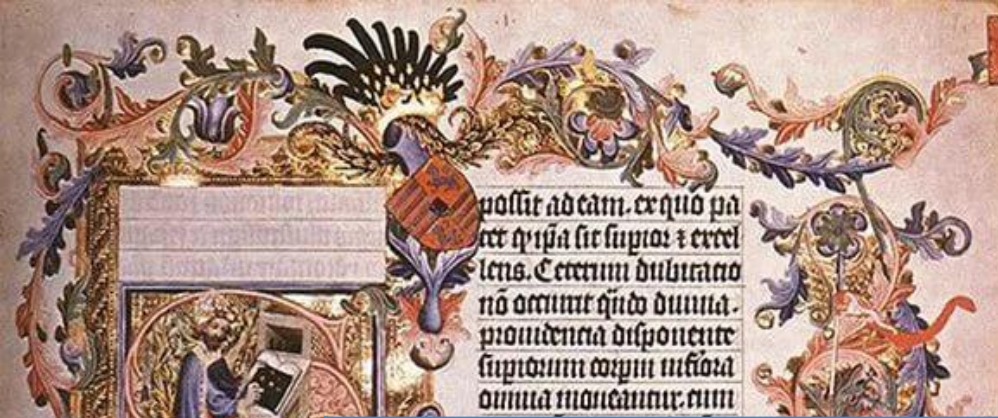 possit ad eam. ex quo pa
tet ꝙ ip̄a sit sup̄ior ⁊ excel
lens. Ceterum dubitatio
nō occurrit q̄ndo diuina.
prouidencia disponente
sup̄iorum inf̄iora
omnia moueantur. cum